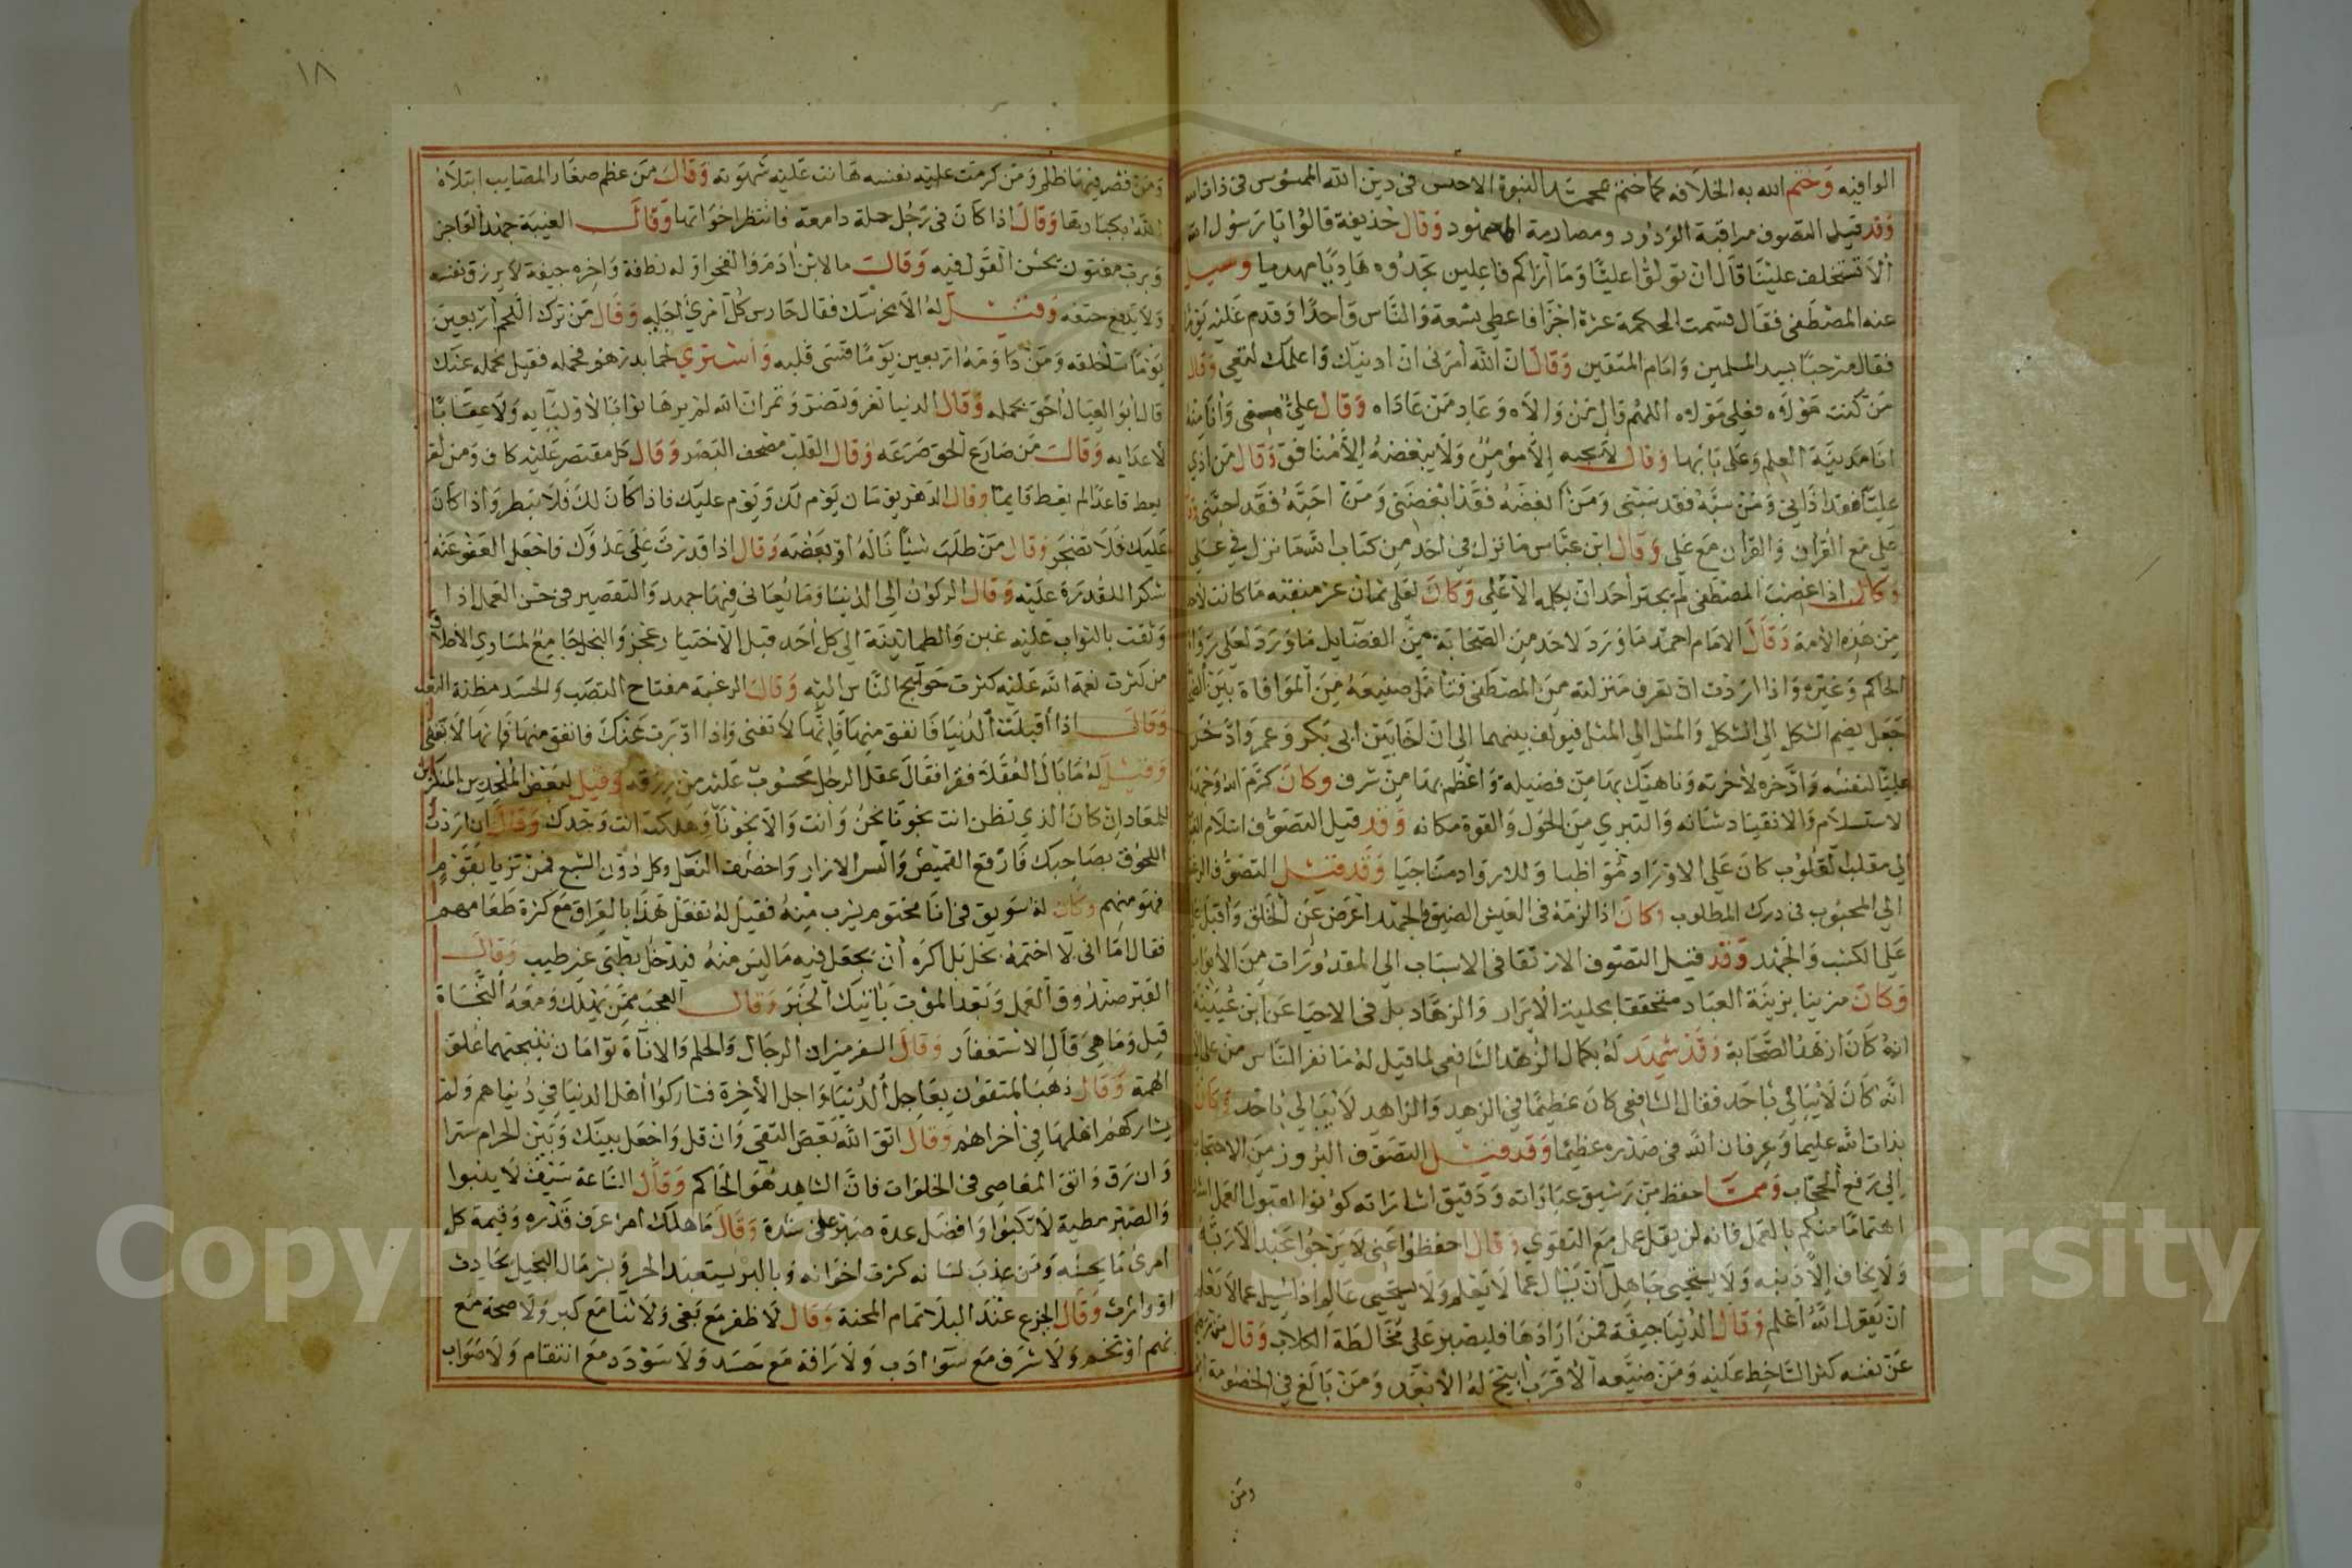 الوافيه وختم الله به الخلافه كما ختم بمحمد النبوة الاحس في دين الله الممسوس في ذات الله
وقد قيل التصوف مراقبة الودود ومصادمة المعهود وقال حذيفة قالوا يا رسول الله
الا تستخلف علينا قال ان تولوا عليا وما اراكم فاعلين تجدوه هاديا مهديا وسيل
عنه المصطفى فقال قسمت الحكمة عشرة اجزا فاعطي تسعة والناس واحدا وقدم عليه يوما
فقال مرحبا بسيد المسلمين وامام المتقين وقال ان الله امرني ان ادنيك واعلمك لتعي وقال
من كنت مولاه فعلي مولاه اللهم وال من والاه وعاد من عاداه وقال علي مني وانا منه
انا مدينة العلم وعلي بابها وقال لا يحبه الا مومن ولا يبغضه الا منافق وقال من اذي
عليا فقد اذاني ومن سبه فقد سبني ومن ابغضه فقد ابغضني ومن احبه فقد احبني
علي مع القران والقران مع علي وقال ابن عباس ما نزل في احد من كتاب الله ما نزل في علي
وكان اذا غضب المصطفى لم يجتر احد ان يكلمه الا علي وكان لعلي ثمان عشر منقبه ما كانت لاحد
من هذه الامة وقال الامام احمد ما ورد لاحد من الصحابة من الفضايل ما ورد لعلي رواه
الحاكم وغيره واذا اردت ان تعرف منزلته من المصطفى فتامل صنيعه من المواخاة بين الصحابة
جعل يضم الشكل الى الشكل والمثل الى المثل فيولف بينهما الى ان اخا بين ابي بكر وعمر وادخر
عليا لنفسه وادخره لاخرته وناهيك بها من فضيلة واعظم بها من شرف وكان كرم الله وجهه
الاستسلام والانقياد شانه والتبري من الحول والقوة مكانه وقد قيل التصوف استلام القياد
الى مقلب القلوب كان على الاوراد مواظبا وللاوراد مناجيا وقد قيل التصوف الرغبة
الى المحبوب في درك المطلوب وكان اذا لزمه في العيش الضيق والجهد اعرض عن الخلق واقبل
على الكسب والجهد وقد قيل التصوف الارتقا في الاسباب الى المقدورات من الابواب
وكان مزينا بزينة العباد متحققا بحلية الابرار والزهاد بل في الاحيا عن ابن عيينة
انه كان ازهد الصحابة وقد شهد له بكمال الزهد الشافعي لما قيل له ما نفر الناس من علي الا
انه كان لا يبالي باحد فقال الشافعي كان عظيما في الزهد والزاهد لا يبالي باحد وكان
بذات الله عليما وعرفان الله في صدره عظيما وقد قيل التصوف البروز من الاحتجاب
الى رفع الحجاب ومما حفظ من رشيق عباراته ودقيق اشاراته كونوا لقبول العمل اشد
اهتماما منكم بالعمل فانه لن يقل عمل مع التقوى وقال احفظوا عني لا يرجوا عبد الا ربه
ولا يخاف الا ذنبه ولا يستحيي جاهل ان يسال عما لا يعلم ولا يستحيي عالم اذا سيل عما لا يعلم
ان يقول الله اعلم وقال الدنيا جيفة فمن ارادها فليصبر على مخالطة الكلاب وقال من رضي
عن نفسه كثر الساخط عليه ومن ضيعه الاقرب اتيح له الابعد ومن بالغ في الخصومة اثم
ومن
١٨
ومن قصر فيها ظلم ومن كرمت عليه نفسه هانت عليه شهوته وقال من عظم صغار المصايب ابتلاه
الله بكبارها وقال اذا كان في رجل خلة رامعة فانتظر اخواتها وقال الغيبة جهد العاجز
ورب مفتون بحسن القول فيه وقال ما لابن ادم والفخر اوله نطفة واخره جيفة لا يرزق نفسه
ولا يدفع حتفه وقيل له الا نحرسك فقال حارس كل امرئ اجله وقال من ترك اللحم اربعين
يوما سا خلقه ومن داومه اربعين يوما قسى قلبه واشترى لحما بدرهم فحمله فقيل نحمله عنك
قال ابو العيال احق بحمله وقال الدنيا تغر وتضر وتمر ان الله لم يرها ثوابا لاوليايه ولا عقابا
لاعدايه وقال من صارع الحق صرعه وقال القلب مصحف البصر وقال كل مقتصر عليه كاف ومن لم
يعط قاعدا لم يعط قايما وقال الدهر يومان يوم لك ويوم عليك فاذا كان لك فلا تبطر واذا كان
عليك فلا تضجر وقال من طلب شيئا ناله او بعضه وقال اذا قدرت على عدوك فاجعل العفو عنه
شكرا للقدرة عليه وقال الركون الى الدنيا وما يعاني فيها جهد والتقصير في حسن العمل اذا
وثقت بالثواب عليه غبن والطمانينة الى كل احد قبل الاختيار عجز والبخل جامع لمساوي الاخلاق
من كثرت نعمة الله عليه كثرت حوايج الناس اليه وقال الرغبة مفتاح النصب والحسد مطية التعب
وقال اذا اقبلت الدنيا فانفق منها فانها لا تفنى واذا ادبرت عنك فانفق منها فانها لا تبقى
وقيل له ما بال العقلا فقرا فقال عقل الرجل محسوب عليه من رزقه وقيل لبعض الملحدين المنكرين
للمعاد ان كان الذي تظن انت نجونا نحن وانت والا نجونا وهلكت انت وحدك وقال ان اردت
اللحوق بصاحبك فارقع القميص والبس الازار واخصف النعل وكل دون الشبع فمن تزيا بقوم
فهو منهم وكان له سويق في انا مختوم يشرب منه فقيل له تفعل هذا بالعراق مع كثرة طعامهم
فقال اما اني لا اختمه بخل بل اكره ان يجعل فيه ما ليس منه فيدخل بطني غير طيب وقال
القبر صندوق العمل وبعد الموت ياتيك الخبر وقال العجب ممن يهلك ومعه النجاة
قيل وما هي قال الاستغفار وقال السفر ميزان الرجال والحلم والاناة توامان نتيجتهما علو
الهمة وقال ذهب المتقون بعاجل الدنيا واجل الاخرة فشاركوا اهل الدنيا في دنياهم ولم
يشاركهم اهلها في اخراهم وقال اتق الله بعض التقى وان قل واجعل بينك وبين الحرام سترا
وان رق واتق المعاصي في الخلوات فان الشاهد هو الحاكم وقال الساعة سيف لا ينبوا
والصبر مطية لا تكبوا وافضل عدة صبر على شدة وقال ما هلك امرء عرف قدره وقيمة كل
امرئ ما يحسنه ومن عذب لسانه كثرت اخوانه وبالبر يستعبد الحر وبشر مال البخيل بحادث
او وارث وقال الجزع عند البلا تمام المحنة وقال لا ظفر مع بغي ولا ثنا مع كبر ولا صحة مع
نهم او تخم ولا شرف مع سوا ادب ولا رافة مع حسد ولا سودد مع انتقام ولا صواب
Copyright © King Saud University